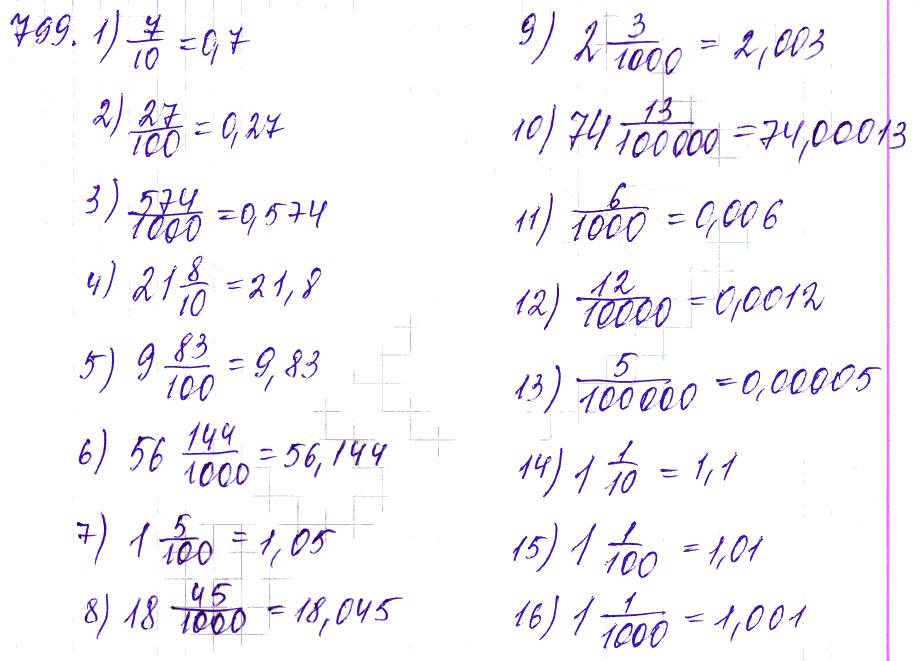 799. 1) 7/10 = 0,7
2) 27/100 = 0,27
3) 574/1000 = 0,574
4) 21 8/10 = 21,8
5) 9 83/100 = 9,83
6) 56 144/1000 = 56,144
7) 1 5/100 = 1,05
8) 18 45/1000 = 18,045
9) 2 3/1000 = 2,003
10) 74 13/100000 = 74,00013
11) 6/1000 = 0,006
12) 12/10000 = 0,0012
13) 5/100000 = 0,00005
14) 1 1/10 = 1,1
15) 1 1/100 = 1,01
16) 1 1/1000 = 1,001